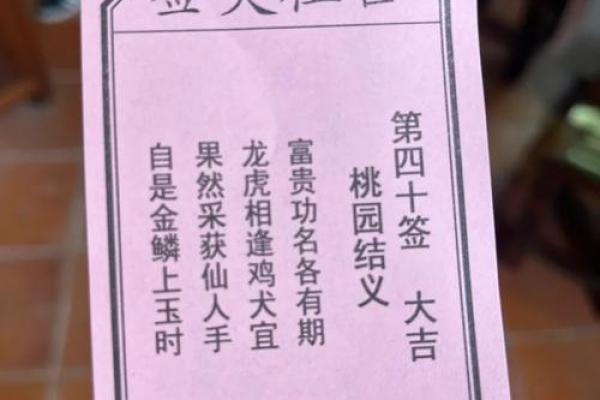 第四十签 大吉
桃园结义
富贵功名各有期
龙虎相逢鸡犬宜
果然采获仙人手
自是金鳞上玉时